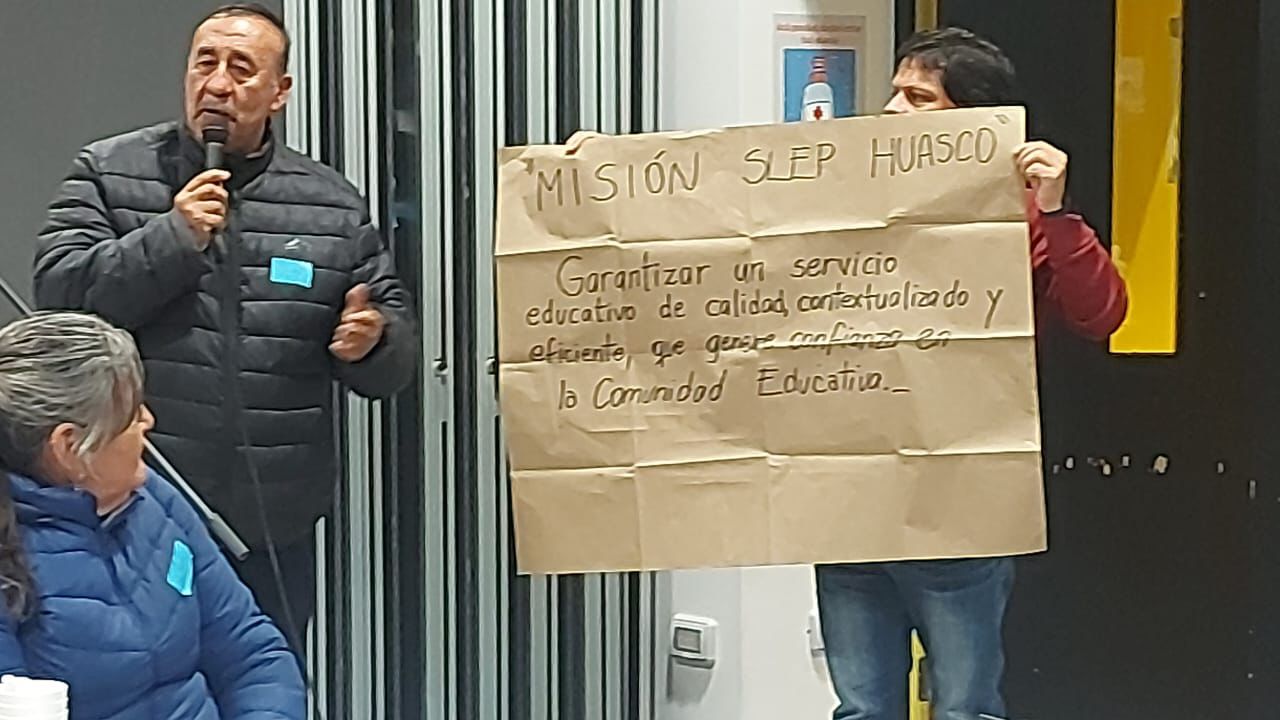 "MISIÓN SLEP HUASCO"
Garantizar un servicio
educativo de calidad, contextualizado y
eficiente, que genere confianza en
la Comunidad Educativa._